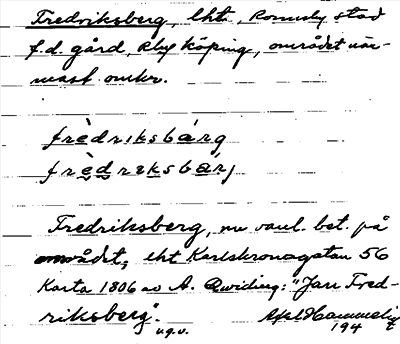 Fredriksberg, lht, Ronneby stad
f.d. gård, Blek köping, området när-
mast omkr.
frèdriksbárg
frèdreksbárj
Fredriksberg, nu vanl. bet. på
området, eht Karlskronagatan 56
Karta 1806 av A. Qwiding: "Jan Fred-
riksberg".
u.g.v.
Axel Hammelin
194